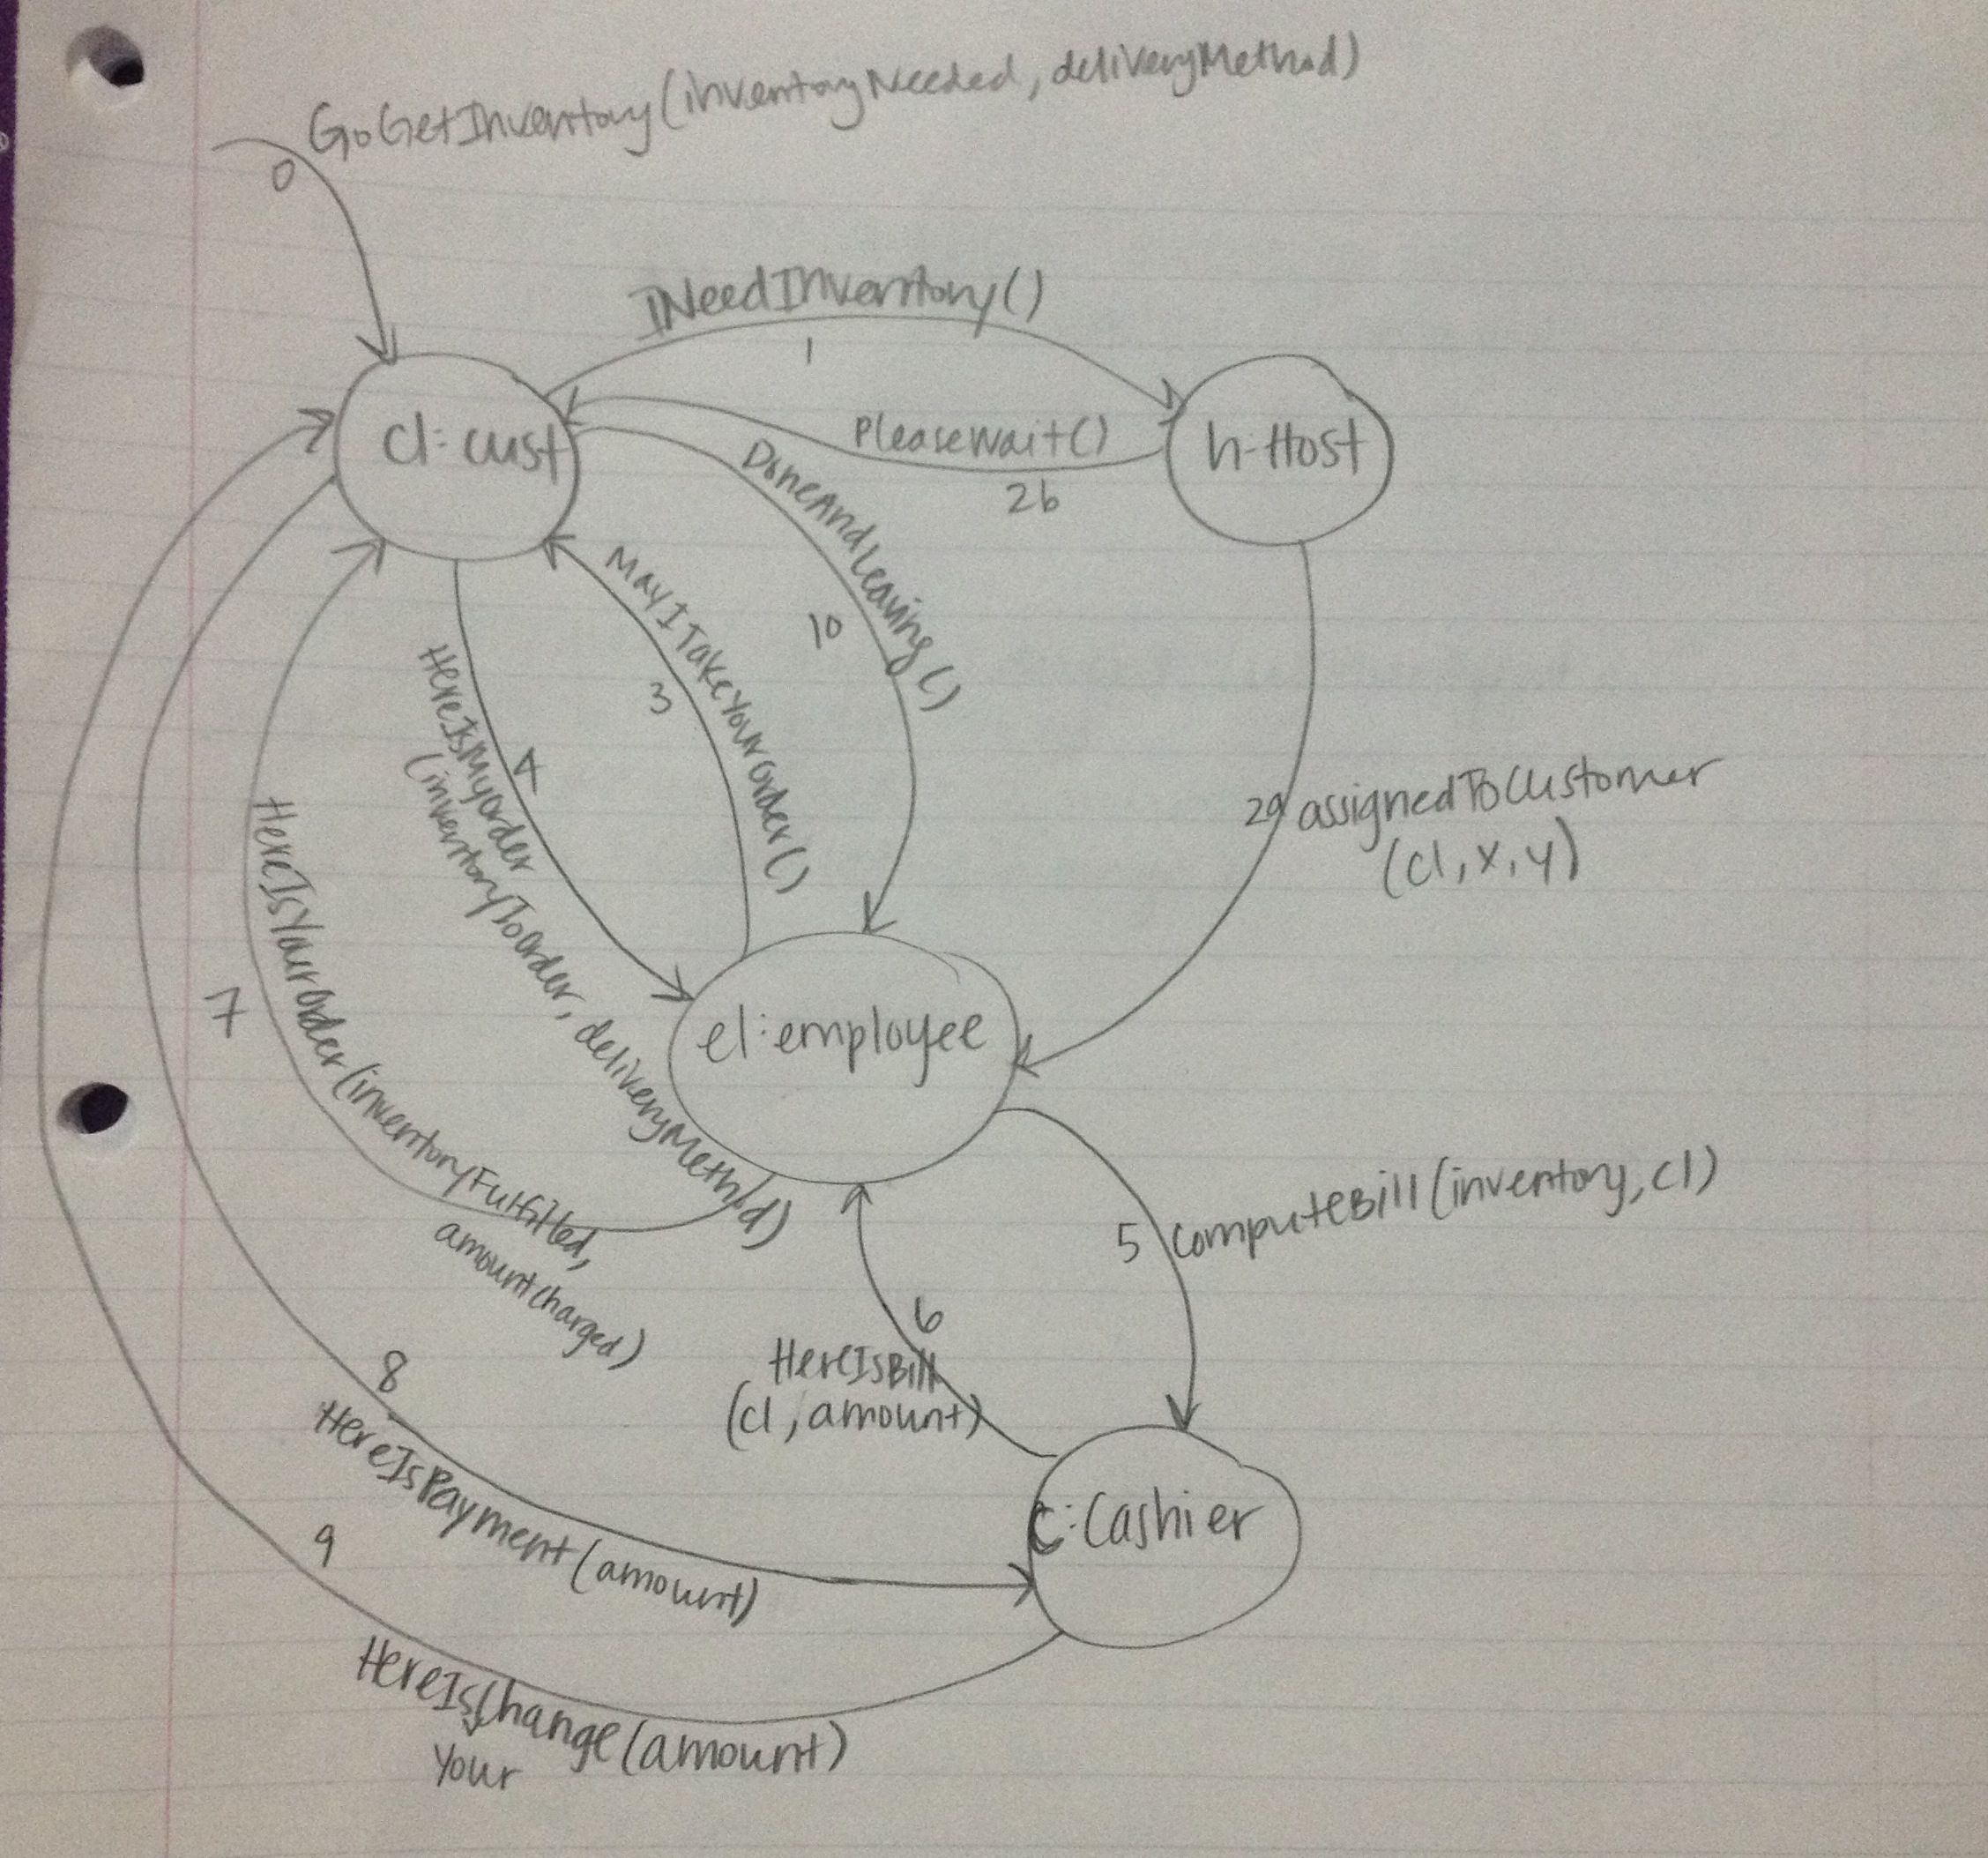 GoGetInventory(inventoryNeeded, deliveryMethod)
0
INeedInventory()
1
c1:cust
PleaseWait()
2b
h:Host
DoneAndLeaving()
10
MayITakeYourOrder()
3
HereIsMyOrder
(inventoryToOrder, deliveryMethod)
4
2a assignedToCustomer
(c1,x,y)
HereIsYourOrder(inventoryFulfilled,
amountCharged)
7
e1:employee
5 ComputeBill(inventory,c1)
6
HereIsBill
(c1,amount)
8
HereIsPayment(amount)
C:Cashier
9
HereIsChange(amount)
Your